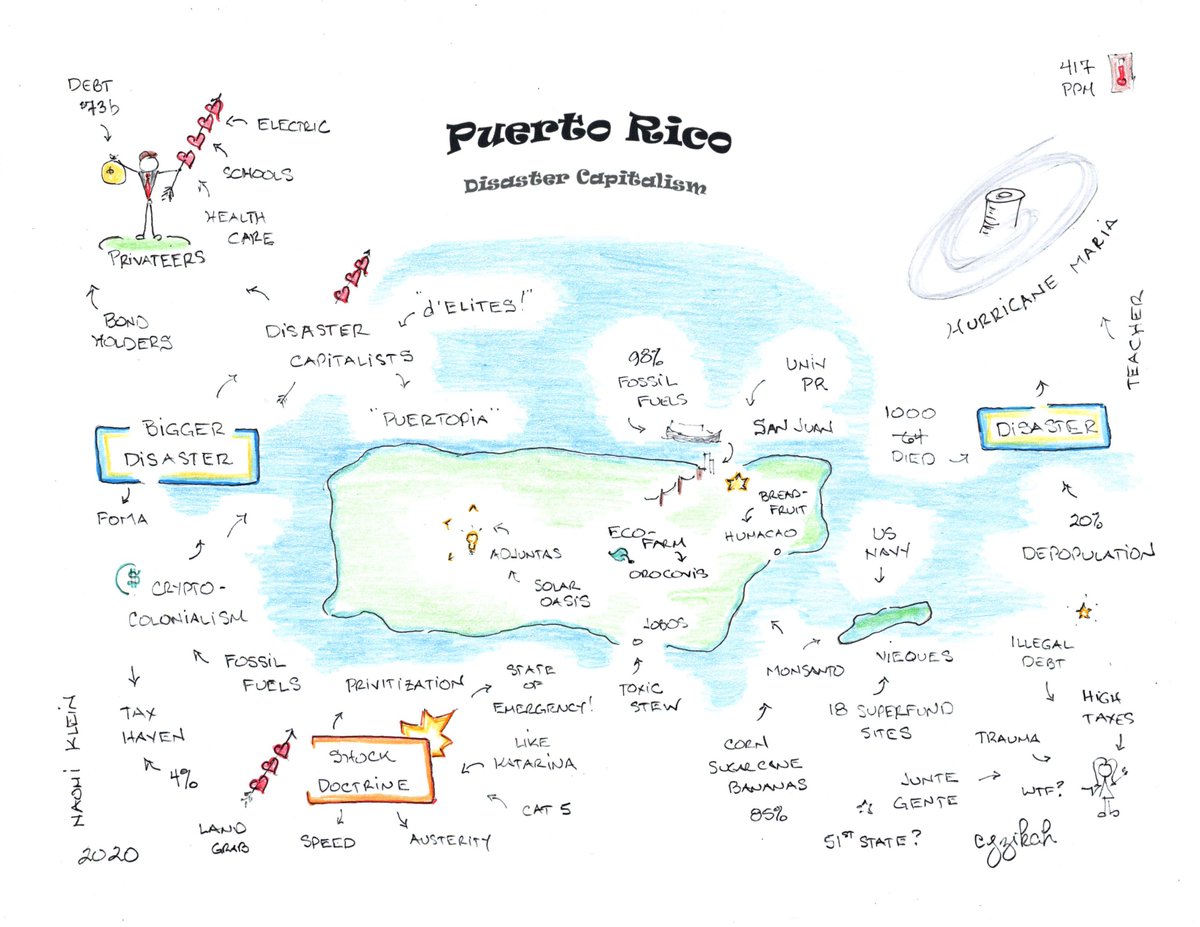 Puerto Rico
Disaster Capitalism
417
PPM
DEBT
$73b
ELECTRIC
SCHOOLS
HEALTH
CARE
PRIVATEERS
BOND
HOLDERS
DISASTER
CAPITALISTS
"d'ELITES!"
"PUERTOPIA"
HURRICANE MARIA
TEACHER
98%
FOSSIL
FUELS
UNIV
PR
SAN JUAN
1000
64
DIED
DISASTER
BIGGER
DISASTER
FOMA
20%
DEPOPULATION
BREAD-
FRUIT
HUMACAO
ECO-
FARM
OROCOVIS
ADJUNTAS
SOLAR
OASIS
US
NAVY
$ CRYPTO-
COLONIALISM
FOSSIL
FUELS
TAX
HAVEN
4%
JOBOS
TOXIC
STEW
MONSANTO
VIEQUES
18 SUPERFUND
SITES
ILLEGAL
DEBT
HIGH
TAXES
TRAUMA
WTF?
PRIVITIZATION
STATE
OF
EMERGENCY!
SHOCK
DOCTRINE
LIKE
KATARINA
CAT 5
LAND
GRAB
SPEED
AUSTERITY
CORN
SUGARCANE
BANANAS
85%
JUNTE
GENTE
51st STATE?
cyzikah
NAOMI KLEIN
2020